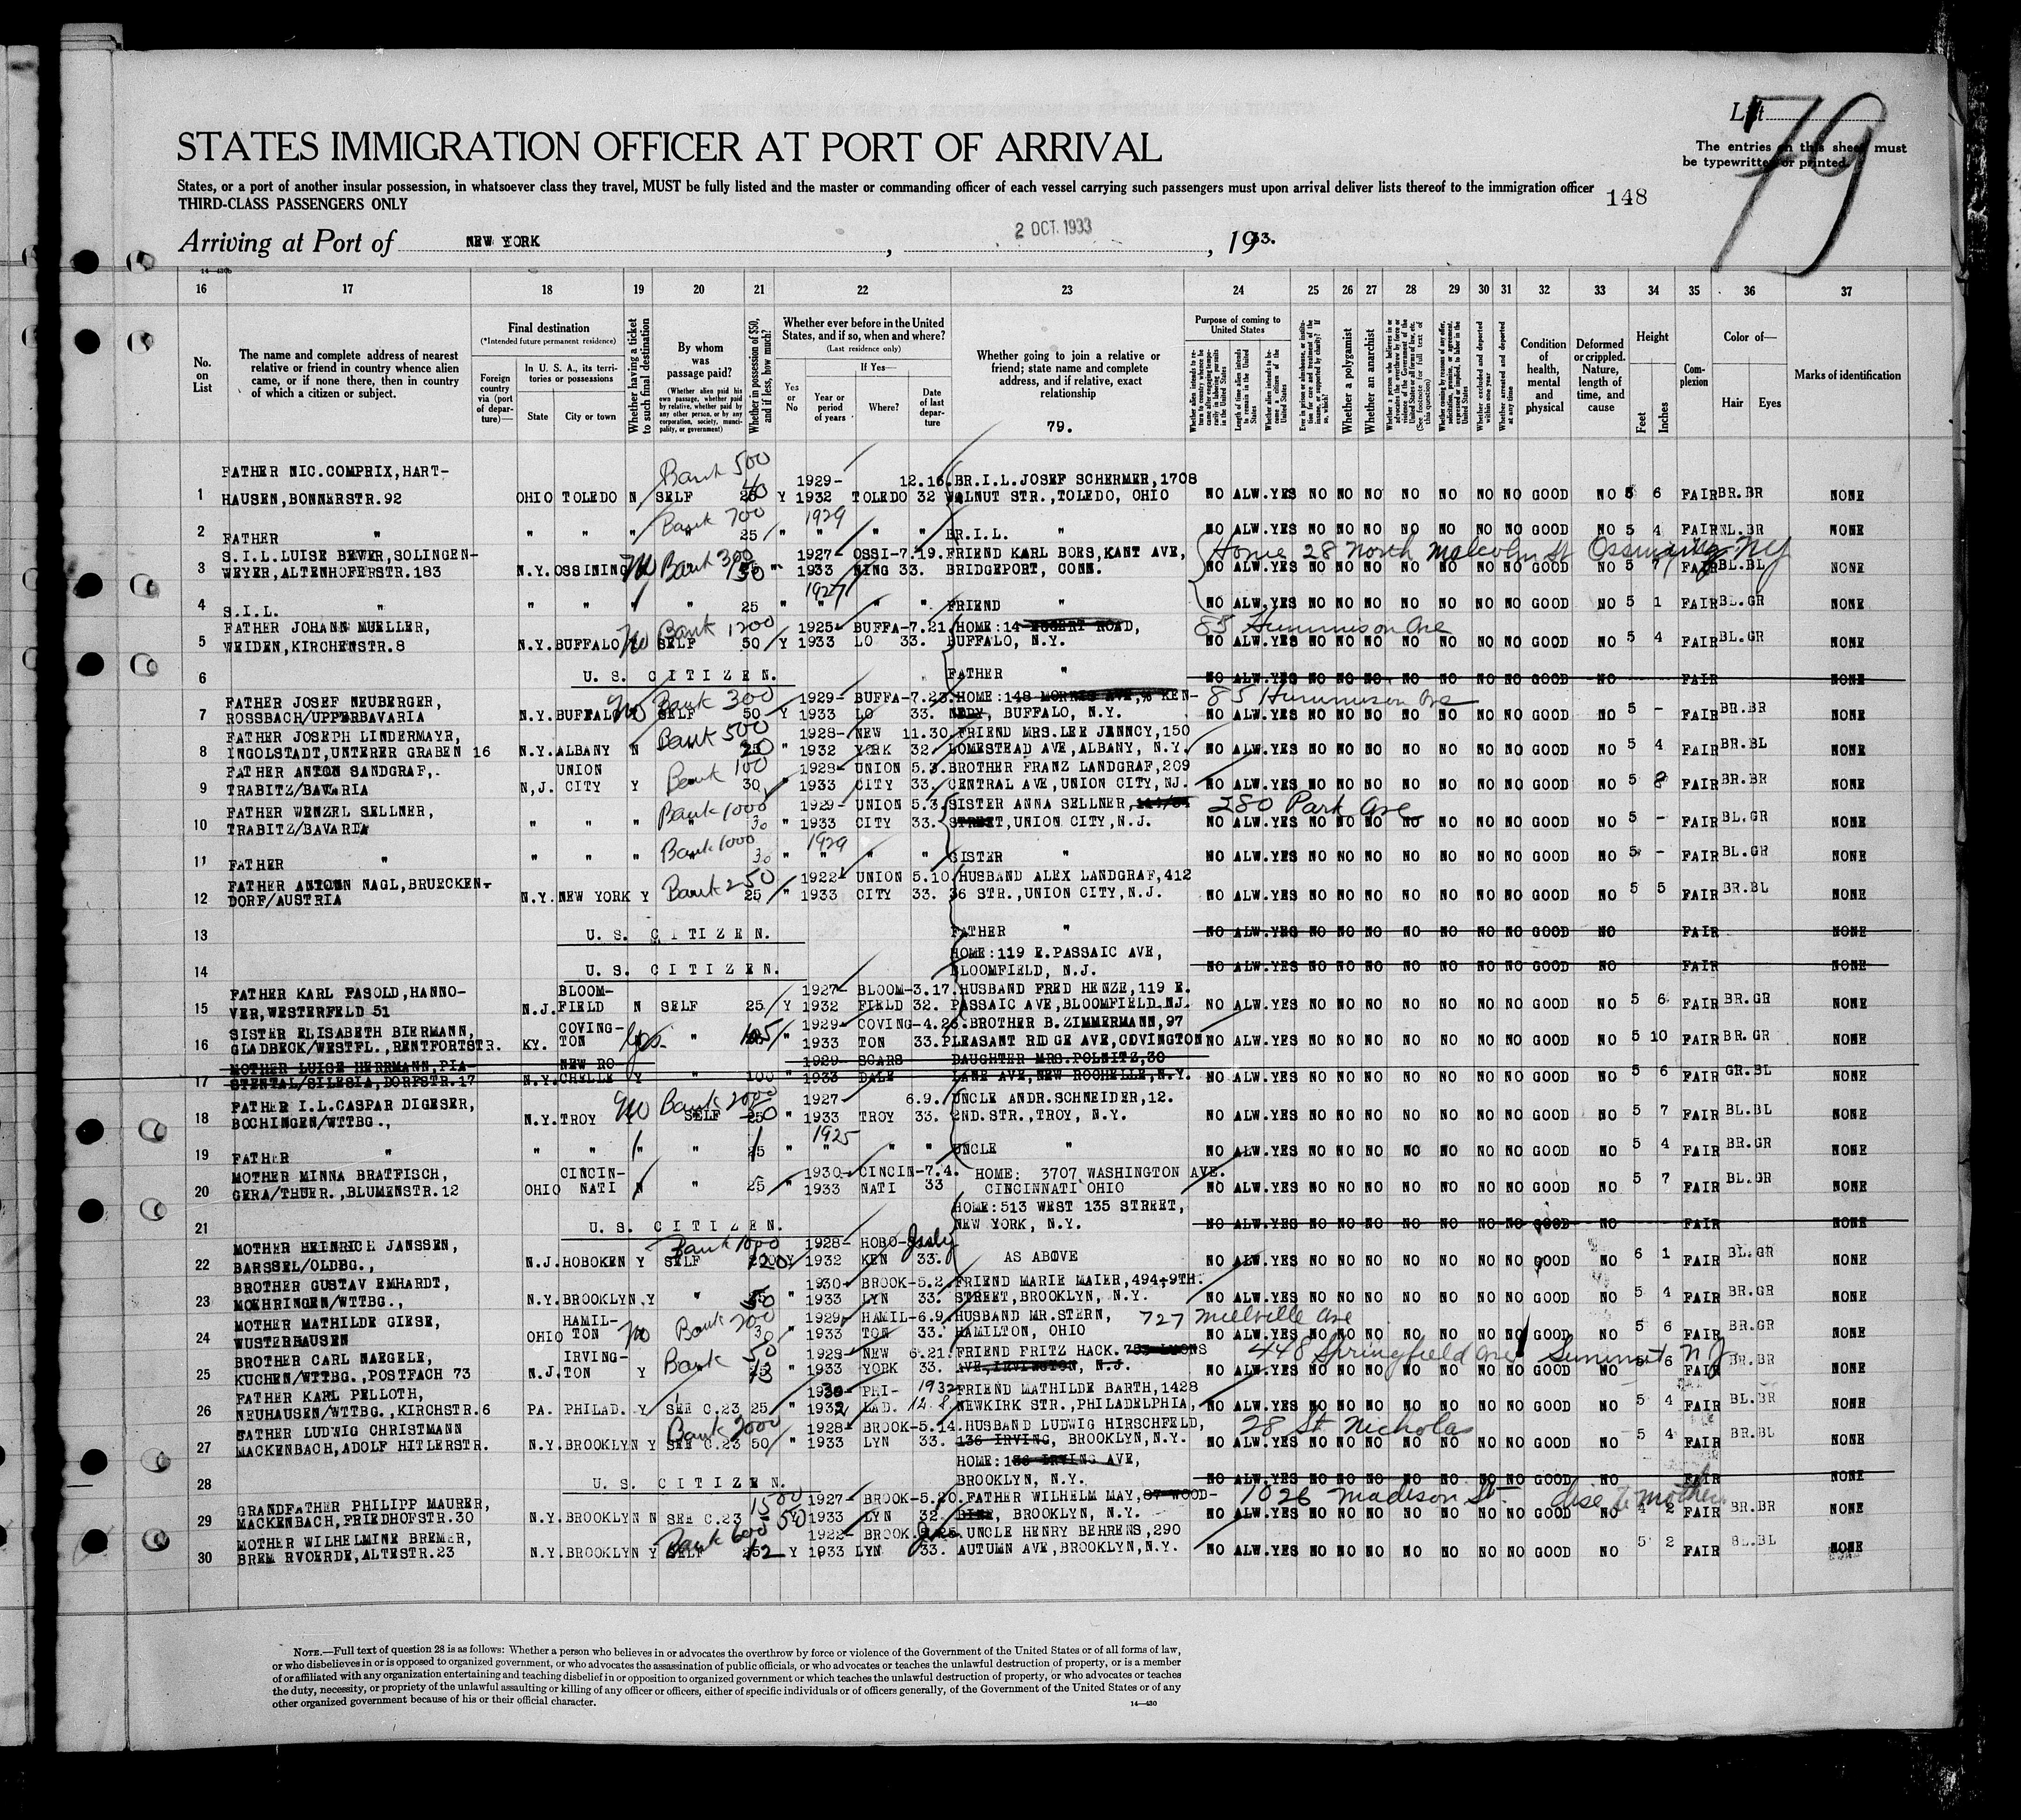 List 79
STATES IMMIGRATION OFFICER AT PORT OF ARRIVAL
The entries on this sheet must
be typewritten or printed.
States, or a port of another insular possession, in whatsoever class they travel, MUST be fully listed and the master or commanding officer of each vessel carrying such passengers must upon arrival deliver lists thereof to the immigration officer
THIRD-CLASS PASSENGERS ONLY
148
Arriving at Port of NEW YORK, 2 OCT. 1933, 1933.
14—430b
16 17 18 19 20 21 22 23 24 25 26 27 28 29 30 31 32 33 34 35 36 37
No. on List
The name and complete address of nearest relative or friend in country whence alien came, or if none there, then in country of which a citizen or subject.
Final destination
(*Intended future permanent residence)
Foreign country via (port of departure)—
In U. S. A., its territories or possessions
State
City or town
Whether having a ticket to such final destination
By whom was passage paid?
(Whether alien paid his own passage, whether paid by relative, whether paid by any other person, or by any corporation, society, municipality, or government)
Whether in possession of $50, and if less, how much?
Whether ever before in the United States, and if so, when and where?
(Last residence only)
Yes or No
If Yes—
Year or period of years
Where?
Date of last departure
Whether going to join a relative or friend; state name and complete address, and if relative, exact relationship
79.
Purpose of coming to United States
Length of time alien intends to remain in the United States
Whether alien intends to become a citizen of the United States
Whether a polygamist
Whether an anarchist
(See footnote for full text of this question)
Whether excluded and deported within one year
Whether arrested and deported at any time
Condition of health, mental and physical
Deformed or crippled. Nature, length of time, and cause
Height
Feet
Inches
Complexion
Color of—
Hair
Eyes
Marks of identification
FATHER NIC.COMPRIX,HART- Bank 500 1929- 12.16. BR.I.L.JOSEF SCHERMER,1708
1 HAUSEN,BONNERSTR.92 OHIO TOLEDO N SELF Y 1932 TOLEDO 32 WALNUT STR.,TOLEDO, OHIO NO ALW.YES NO NO NO NO NO NO NO GOOD NO 5 6 FAIR BR.BR NONE
Bank 700 1929
2 FATHER " " " " " 25 " " " " BR.I.L. " NO ALW.YES NO NO NO NO NO NO NO GOOD NO 5 4 FAIR BR NONE
S.I.L.LUISE BEVER,SOLINGEN- Bank 300 1927- OSSI-7.19. FRIEND KARL BOES,KANT AVE, Home 28 North Malcolm St Ossining NY
3 WEYER,ALTENHOFERSTR.183 N.Y. OSSINING No " 1933 NING 33. BRIDGEPORT, CONN. NO ALW.YES NO NO NO NO NO NO NO GOOD NO 5 FAIR BL.BL NONE
1927
4 S.I.L. " " " " " 25 " " " " FRIEND " NO ALW.YES NO NO NO NO NO NO NO GOOD NO 5 1 FAIR BL.GR NONE
FATHER JOHANN MUELLER, Bank 1200 1925- BUFFA-7.21. HOME:14 EGGERT ROAD, 85 Ave
5 WEIDEN,KIRCHENSTR.8 N.Y. BUFFALO No SELF 50 Y 1933 LO 33. BUFFALO, N.Y. NO ALW.YES NO NO NO NO NO NO NO GOOD NO 5 4 FAIR BL.GR NONE
6 U. S. CITIZEN. FATHER " NO ALW.YES NO NO NO NO NO NO NO GOOD NO FAIR NONE
FATHER JOSEF NEUBERGER, Bank 300 1929- BUFFA-7.23. HOME:148 MORRIS AVE,% KEN- 85 Ave
7 ROSSBACH/UPPERBAVARIA N.Y. BUFFALO No SELF 50 Y 1933 LO 33. NEDY, BUFFALO, N.Y. NO ALW.YES NO NO NO NO NO NO NO GOOD NO 5 - FAIR BR.BR NONE
FATHER JOSEPH LINDERMAYR, Bank 500 1928- NEW 11.30. FRIEND MRS.LEE JENNCY,150
8 INGOLSTADT,UNTERER GRABEN 16 N.Y. ALBANY N " " 1932 YORK 32. LOMESTEAD AVE,ALBANY, N.Y. NO ALW.YES NO NO NO NO NO NO NO GOOD NO 5 4 FAIR BR.BL NONE
FATHER ANTON SANDGRAF, UNION Bank 100 1928- UNION 5.3. BROTHER FRANZ LANDGRAF,209
9 TRABITZ/BAVARIA N.J. CITY Y 30 " 1933 CITY 33. CENTRAL AVE,UNION CITY, NJ. NO ALW.YES NO NO NO NO NO NO NO GOOD NO 5 8 FAIR BR.BR NONE
FATHER WENZEL SELLNER, Bank 1000 1929- UNION 5.3. SISTER ANNA SELLNER, 280 Park Ave
10 TRABITZ/BAVARIA " " " " 30 " 1933 CITY 33. STREET,UNION CITY,N.J. NO ALW.YES NO NO NO NO NO NO NO GOOD NO 5 - FAIR BL.GR NONE
Bank 1000 1929
11 FATHER " " " " " 30 " " " " SISTER " NO ALW.YES NO NO NO NO NO NO NO GOOD NO 5 - FAIR BL.GR NONE
FATHER ANTONN NAGL,BRUECKEN- Bank 250 1922- UNION 5.10. HUSBAND ALEX LANDGRAF,412
12 DORF/AUSTRIA N.Y. NEW YORK Y 25 " 1933 CITY 33. 36 STR.,UNION CITY,N.J. NO ALW.YES NO NO NO NO NO NO NO GOOD NO 5 5 FAIR BR.BL NONE
13 U. S. CITIZEN. FATHER " NO ALW.YES NO NO NO NO NO NO NO GOOD NO FAIR NONE
HOME:119 E.PASSAIC AVE,
14 U. S. CITIZEN. BLOOMFIELD, N.J. NO ALW.YES NO NO NO NO NO NO NO GOOD NO FAIR NONE
FATHER KARL FASOLD,HANNO- BLOOM- 1927- BLOOM-3.17. HUSBAND FRED HENZE,119 E.
15 VER,WESTERFELD 51 N.J. FIELD N SELF 25 Y 1932 FIELD 32. PASSAIC AVE,BLOOMFIELD.N.J. NO ALW.YES NO NO NO NO NO NO NO GOOD NO 5 6 FAIR BR.GR NONE
SISTER ELISABETH BIERMANN, COVING- 1929- COVING-4.26. BROTHER B.ZIMMERMANN,97
16 GLADBECK/WESTFL.,RENTFORTSTR. KY. TON yes " " 1933 TON 33. PLEASANT RIDGE AVE,COVINGTON NO ALW.YES NO NO NO NO NO NO NO GOOD NO 5 10 FAIR BR.GR NONE
MOTHER LUISE HERRMANN,PIA- NEW RO- 1929- SCARS DAUGHTER MRS.POLNITZ,30
17 STENTAL/SILESIA,DORFSTR.17 N.Y. CHELLE Y " 100 " 1933 DALE LANE AVE,NEW ROCHELLE,N.Y. NO ALW.YES NO NO NO NO NO NO NO GOOD NO 5 6 FAIR GR.BL NONE
FATHER I.L.CASPAR DIGESER, Bank 2000 1927 6.9. UNCLE ANDR.SCHNEIDER,12.
18 BOCHINGEN/WTTBG., N.Y. TROY No SELF " 1933 TROY 33. 2ND.STR.,TROY, N.Y. NO ALW.YES NO NO NO NO NO NO NO GOOD NO 5 7 FAIR BL.BL NONE
1925
19 FATHER " " " " 25 " " " " UNCLE " NO ALW.YES NO NO NO NO NO NO NO GOOD NO 5 4 FAIR BR.GR NONE
MOTHER MINNA BRATFISCH, CINCIN- 1930- CINCIN-7.4. HOME: 3707 WASHINGTON AVE.
20 GERA/THUER.,BLUMENSTR.12 OHIO NATI N " 25 " 1933 NATI 33 CINCINNATI OHIO NO ALW.YES NO NO NO NO NO NO NO GOOD NO 5 7 FAIR BL.GR NONE
HOME:513 WEST 135 STREET,
21 U. S. CITIZEN. NEW YORK, N.Y. NO ALW.YES NO NO NO NO NO NO NO GOOD NO FAIR NONE
MOTHER HEINRICH JANSSEN, Bank 1000 1928- HOBO- July
22 BARSSEL/OLDBG., N.J. HOBOKEN Y SELF Y 1932 KEN 33. AS ABOVE NO ALW.YES NO NO NO NO NO NO NO GOOD NO 6 1 FAIR BL.GR NONE
BROTHER GUSTAV EMHARDT, 1930- BROOK-5.2. FRIEND MARIE MAIER,494-9TH.
23 MOEHRINGEN/WTTBG., N.Y. BROOKLYN.Y " 50 " 1933 LYN 33. STREET,BROOKLYN, N.Y. NO ALW.YES NO NO NO NO NO NO NO GOOD NO 5 4 FAIR BR.GR NONE
MOTHER MATHILDE GIESE, HAMIL- Bank 200 1929- HAMIL-6.9. HUSBAND MR.STERN, 727 Millville Ave
24 WUSTERHAUSEN OHIO TON No " 1933 TON 33. HAMILTON, OHIO NO ALW.YES NO NO NO NO NO NO NO GOOD NO 5 6 FAIR BR.GR NONE
BROTHER CARL NAEGELE, IRVING- Bank 50 1928- NEW 6.21. FRIEND FRITZ HACK. LYONS 448 Springfield Ave Summit N J
25 KUCHEN/WTTBG.,POSTFACH 73 N.J. TON Y " 1933 YORK 33. AVE,IRVINGTON, N.J. NO ALW.YES NO NO NO NO NO NO NO GOOD NO 5 6 FAIR BR.BR NONE
FATHER KARL PELLOTH, 1930- PHI- 1932 FRIEND MATHILDE BARTH,1428
26 NEUHAUSEN/WTTBG.,KIRCHSTR.6 PA. PHILAD. Y SEE C.23 25 " 1932 LAD. 12.8 NEWKIRK STR.,PHILADELPHIA, NO ALW.YES NO NO NO NO NO NO NO GOOD NO 5 4 FAIR BL.BR NONE
FATHER LUDWIG CHRISTMANN Bank 2000 1928- BROOK-5.14. HUSBAND LUDWIG HIRSCHFELD, 28 St Nicholas
27 MACKENBACH,ADOLF HITLERSTR. N.Y. BROOKLYN Y SEE C.23 50 " 1933 LYN 33. 136 IRVING, BROOKLYN,N.Y. NO ALW.YES NO NO NO NO NO NO NO GOOD NO 5 4 FAIR BR.BL NONE
HOME:136 IRVING AVE,
28 U. S. CITIZEN. BROOKLYN, N.Y. NO ALW.YES NO NO NO NO NO NO NO GOOD NO FAIR NONE
GRANDFATHER PHILIPP MAURER, 1500 1927- BROOK-5.20. FATHER WILHELM MAY,87 WOOD- 1026 Madison St mother
29 MACKENBACH,FRIEDHOFSTR.30 N.Y. BROOKLYN N SEE C.23 50 1933 LYN 32. BINE, BROOKLYN, N.Y. NO ALW.YES NO NO NO NO NO NO NO GOOD NO 4 2 FAIR BR.BR NONE
MOTHER WILHELMINE BREMER, Bank 600 1922- BROOK. UNCLE HENRY BEHRENS,290
30 BREM RVOERDE,ALTESTR.23 N.Y. BROOKLYN Y SELF Y 1933 LYN 33. AUTUMN AVE,BROOKLYN,N.Y. NO ALW.YES NO NO NO NO NO NO NO GOOD NO 5 2 FAIR BL.BL NONE
NOTE.—Full text of question 28 is as follows: Whether a person who believes in or advocates the overthrow by force or violence of the Government of the United States or of all forms of law,
or who disbelieves in or is opposed to organized government, or who advocates the assassination of public officials, or who advocates or teaches the unlawful destruction of property, or is a member
of or affiliated with any organization entertaining and teaching disbelief in or opposition to organized government or which teaches the unlawful destruction of property, or who advocates or teaches
the duty, necessity, or propriety of the unlawful assaulting or killing of any officer or officers, either of specific individuals or of officers generally, of the Government of the United States or of any
other organized government because of his or their official character.
14—430